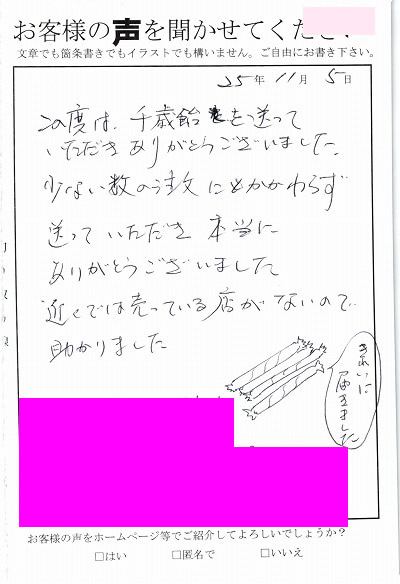 お客様の声を聞かせてくださ
文章でも箇条書きでもイラストでも構いません。ご自由にお書き下さい。
25年 11月 5日
この度は、千歳飴を送って
いただきありがとうございました。
少ない数の注文にもかかわらず
送っていただき 本当に
ありがとうございました
近くでは売っている店がないので、
助かりました
きれいに
届きました
お客様の声をホームページ等でご紹介してよろしいでしょうか？
□はい □匿名で □いいえ